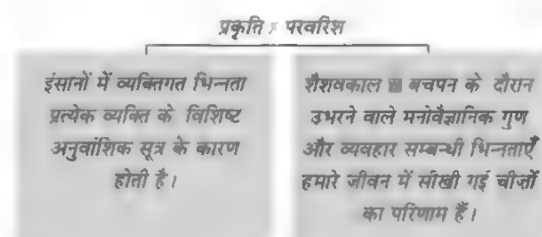 प्रकृति परवरिश
इंसानों में व्यक्तिगत भिन्नता
प्रत्येक व्यक्ति के विशिष्ट
अनुवांशिक सूत्र के कारण
होती है।
शैशवकाल बचपन के दौरान
उभरने वाले मनोवैज्ञानिक गुण
और व्यवहार सम्बन्धी भिन्नताएँ
हमारे जीवन में सीखी गई चीज़ों
का परिणाम हैं।